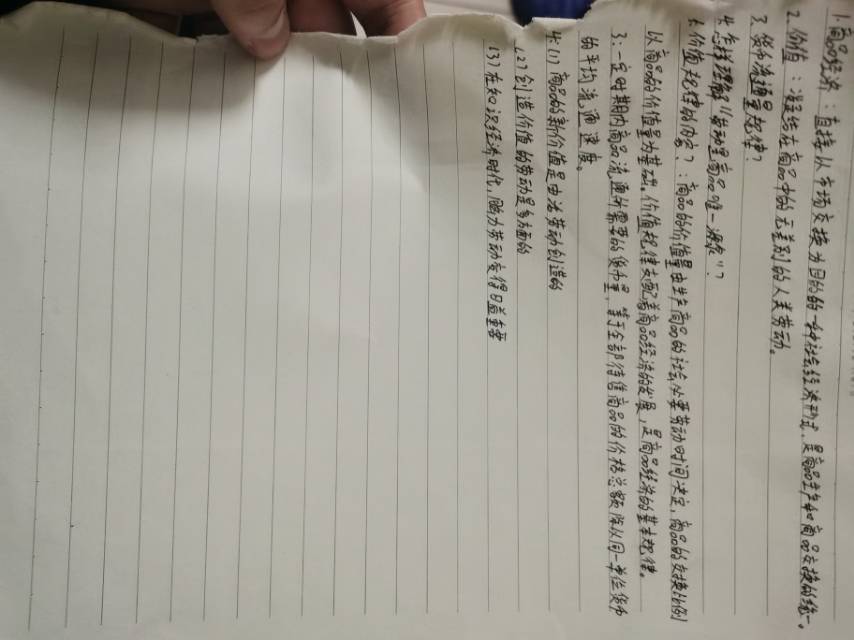 1.商品经济：直接以市场交换为目的的一种社会经济形式，是商品生产和商品交换的统一。
2.价值：凝结在商品中的无差别的人类劳动。
3.货币流通量规律？
4.怎样理解"劳动是商品唯一源泉"？
1.价值规律的内容？：商品的价值量由生产商品的社会必要劳动时间决定，商品的交换比例
以商品的价值量为基础。价值规律支配着商品经济的发展，是商品经济的基本规律。
3：一定时期内商品流通所需要的货币量，等于全部待售商品的价格总额除以同一单位货币
的平均流通速度。
4：(1)商品的新价值是由活劳动创造的
(2)创造价值的劳动是多方面的
(3)在知识经济时代，脑力劳动变得日益重要